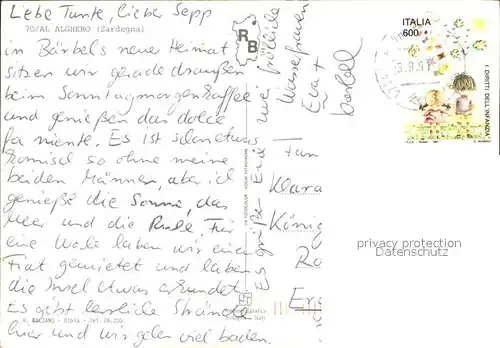 Liebe Tante, lieber Sepp
70/AL ALGHERO (Sardegna)
in Bärbel's neue Heimat
sitzen wir gerade draußen
beim Sonntagmorgenkaffee
und genießen das dolce
fa niente. Es ist schon etwas
komisch so ohne meine
beiden Männer, aber ich
genieße die Sonne, das
Meer und die Ruhe. Für
eine Woche haben wir ein
Fiat gemietet und haben
die Insel etwas erkundet.
Es gibt herrliche Strände
hier und wir gehen viel baden.
K. BALZANO - 01646 - Tel. 26.200
Es grüßen Euch
wie fröhliche
Wasserfrauen
Eva +
Bärbel
R
B
ITALIA
600
I DIRITTI DELL'INFANZIA
Klara
König
privacy protection
Datenschutz